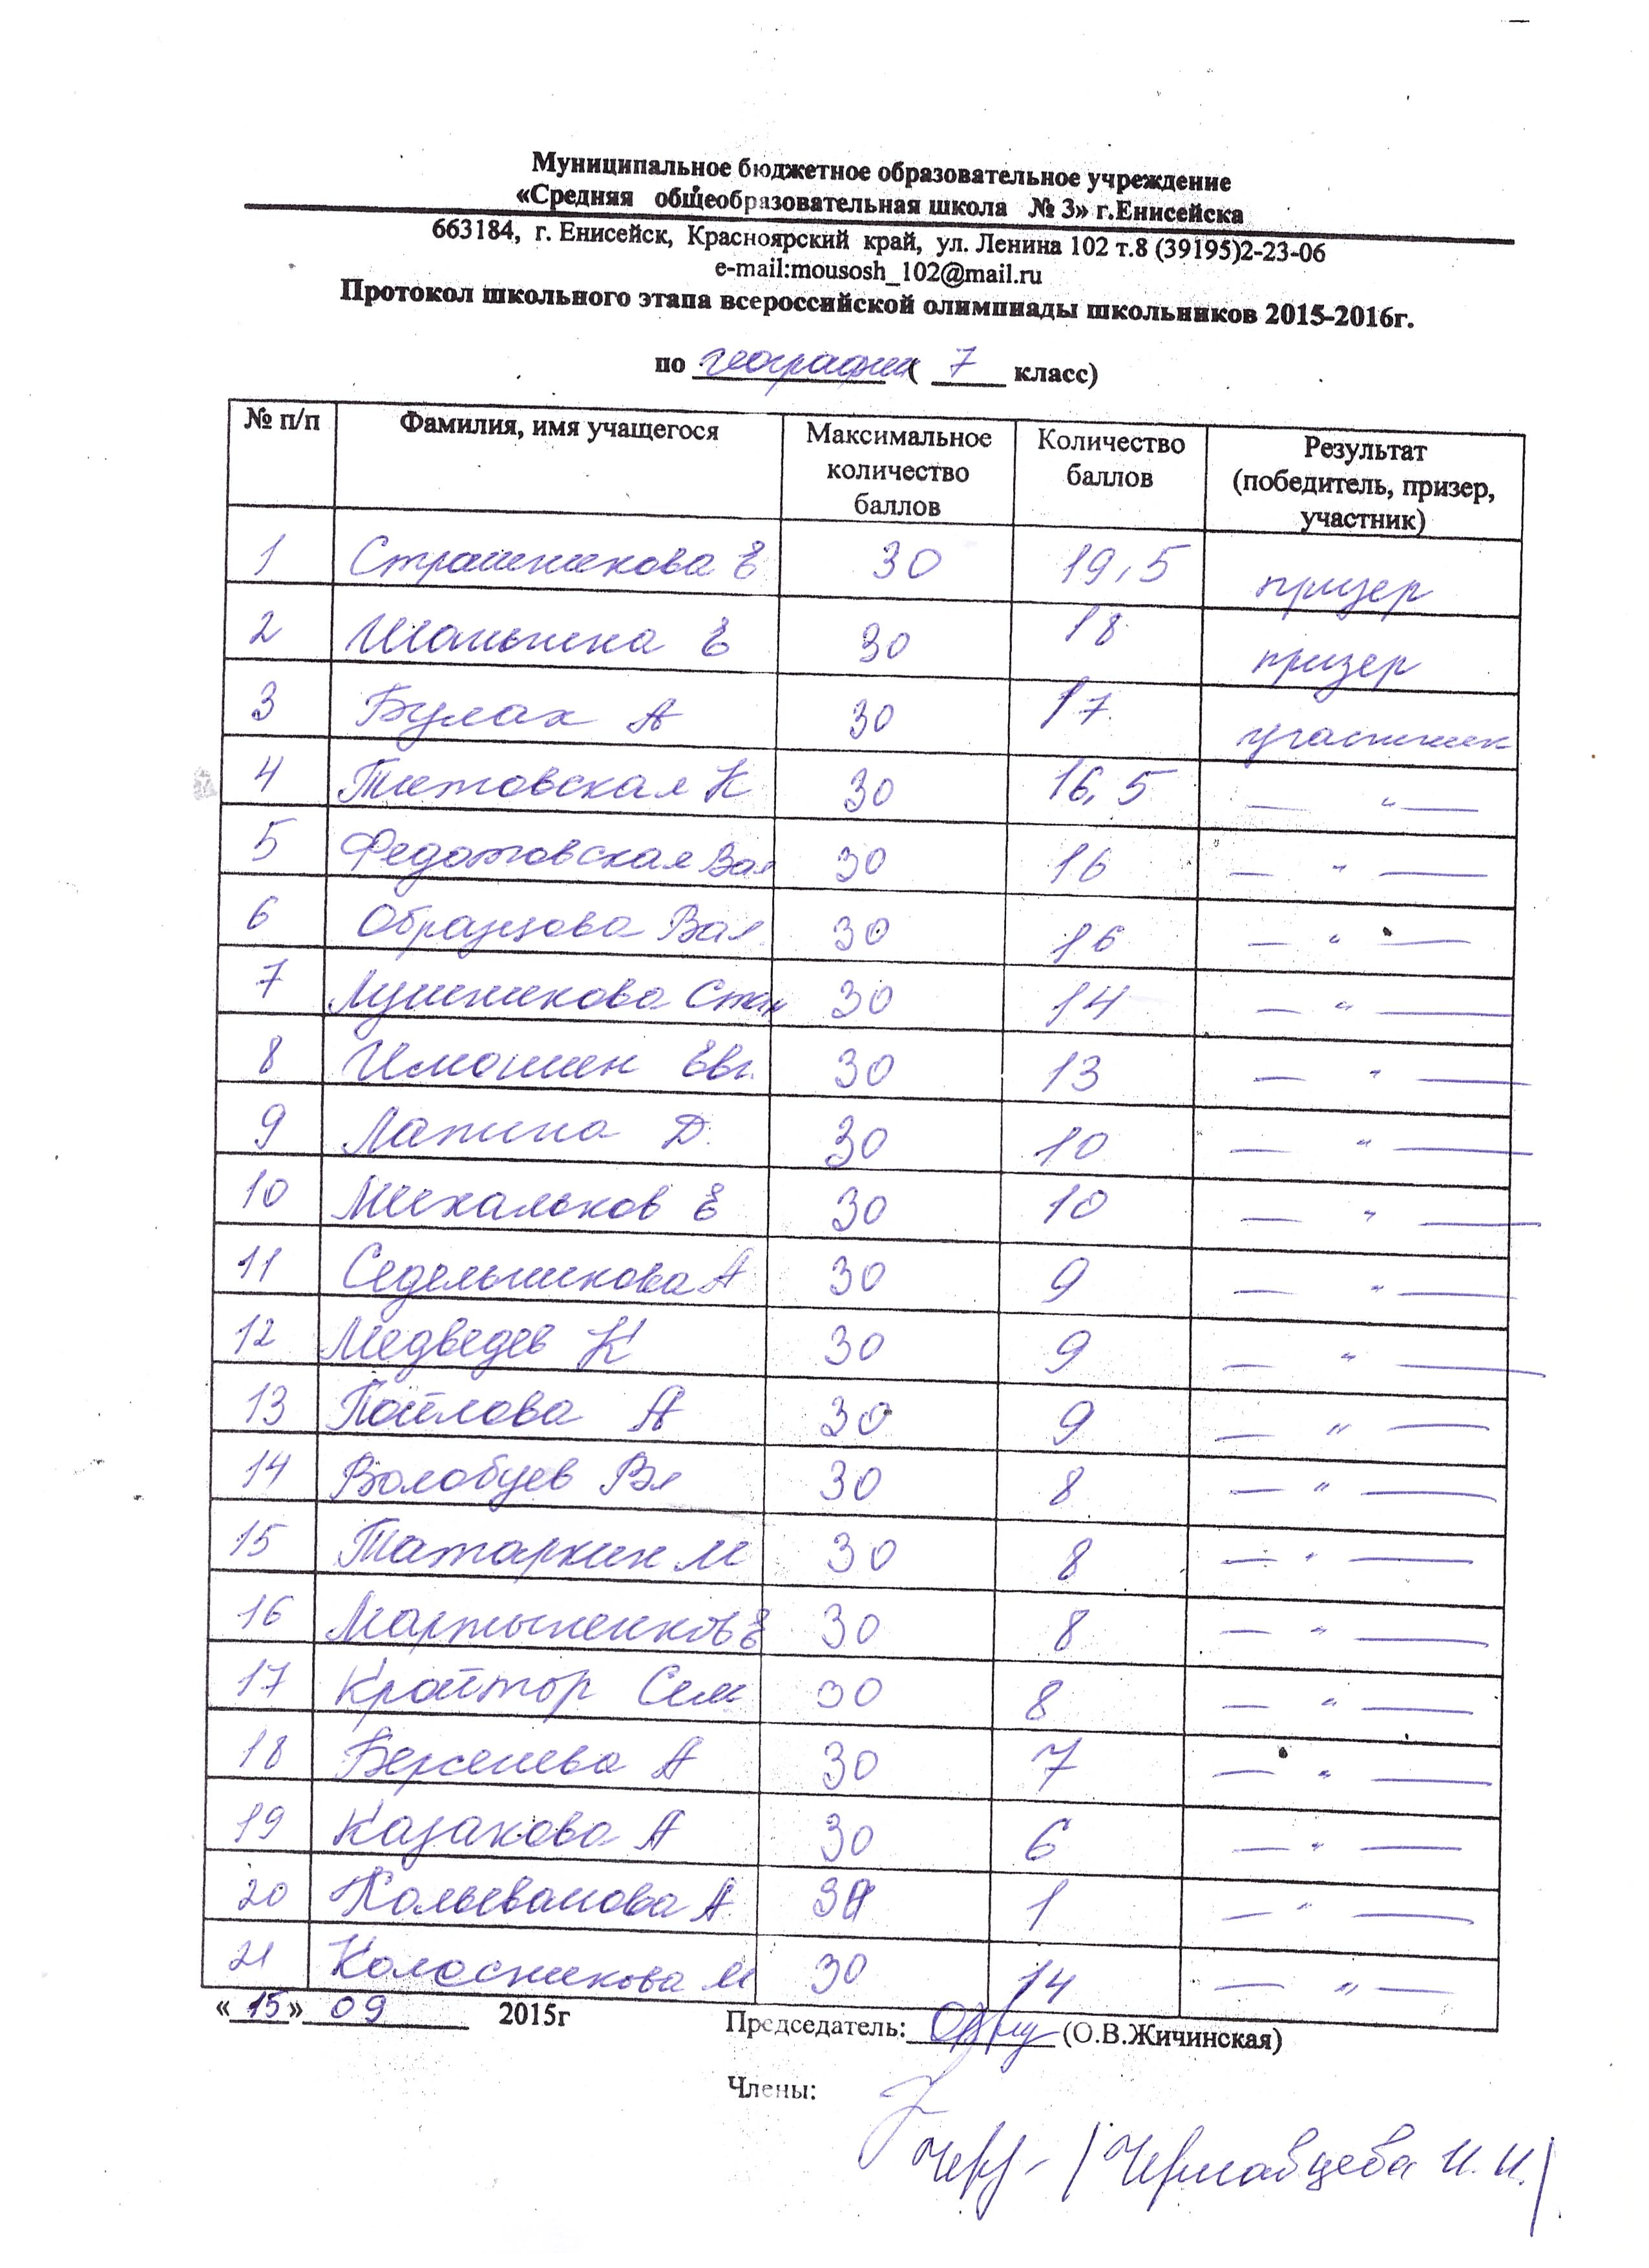 Муниципальное бюджетное образовательное учреждение
«Средняя общеобразовательная школа № 3» г.Енисейска
663184, г. Енисейск, Красноярский край, ул. Ленина 102 т.8 (39195)2-23-06
e-mail:mousosh_102@mail.ru
Протокол школьного этапа всероссийской олимпиады школьников 2015-2016г.
по географии ( 7 класс)
№ п/п Фамилия, имя учащегося Максимальное количество баллов Количество баллов Результат (победитель, призер, участник)
1 Е 30 19,5 призер
2 Шанькина Е 30 18 призер
3 Булах А 30 17 участник
4 К 30 16,5 — " —
5 Федотовская Вал 30 16 — " —
6 Образцова Вал 30 16 — " —
7 Лушникова Стан 30 14 — " —
8 Имошин Евг. 30 13 — " —
9 Лапина Д. 30 10 — " —
10 Михальков Е 30 10 — " —
11 Седельникова А 30 9 — " —
12 Медведев К 30 9 — " —
13 Пойлова А 30 9 — " —
14 Волобуев Вл 30 8 — " —
15 Татаркин М 30 8 — " —
16 Мартыненков Е 30 8 — " —
17 Кройтор Сем 30 8 — " —
18 Берсенева А 30 7 — " —
19 Казакова А 30 6 — " —
20 Колыванова А 30 1 — " —
21 Колосникова М 30 14 — " —
«15» 09 2015г Председатель: (О.В.Жичинская)
Члены:
/ И.И./